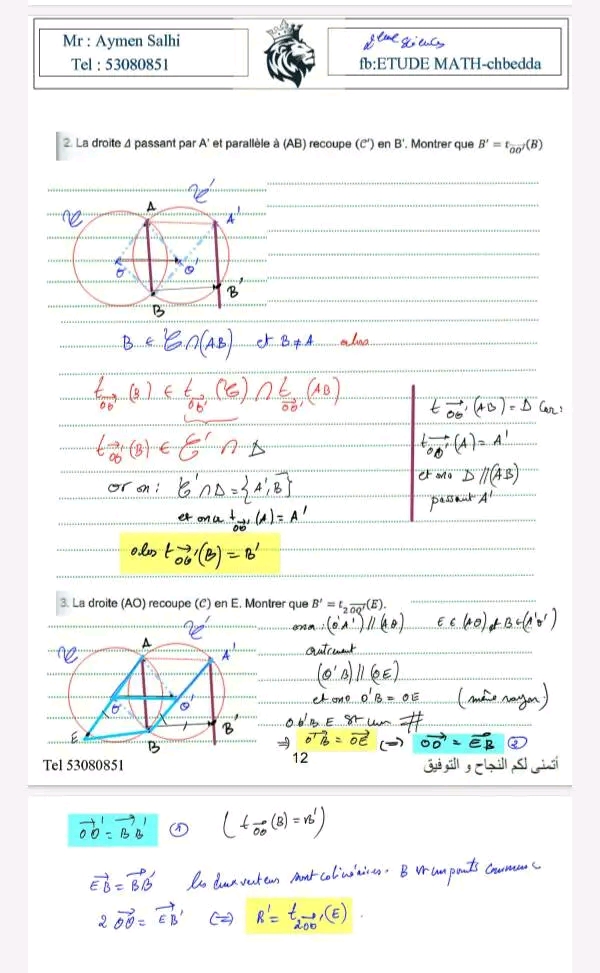 Mr : Aymen Salhi
Tel : 53080851
2eme sciences
fb:ETUDE MATH-chbedda
2. La droite Δ passant par A' et parallèle à (AB) recoupe (C') en B'. Montrer que B' = t_OO'(B)
C C'
A A'
O O'
B B'
B ∈ C ∩ (AB) et B ≠ A alors
t_OO'(B) ∈ t_OO'(C) ∩ t_OO'(AB)
t_OO'(B) ∈ C' ∩ Δ
or on : C' ∩ Δ = {A', B'}
et on a t_OO'(A) = A'
alors t_OO'(B) = B'
t_OO'(AB) = Δ Car :
t_OO'(A) = A'
et ona Δ // (AB)
passant A'
3. La droite (AO) recoupe (C) en E. Montrer que B' = t_2OO'(E).
C C'
A A'
O O'
E B B'
ona : (O'A') // (AO) E ∈ (AO) et B ∈ (A'O')
autrement
(O'B) // (OE)
et ona O'B = OE (même rayon)
OO'BE est un #
⇒ O'B = OE ⇔ OO' = EB ②
Tel 53080851
12
أتمنى لكم النجاح و التوفيق
OO' = BB' ① (t_OO'(B) = B')
EB = BB' les deux vecteurs sont colinéaires. B est un points commun
2 OO' = EB' ⇔ B' = t_2OO'(E).